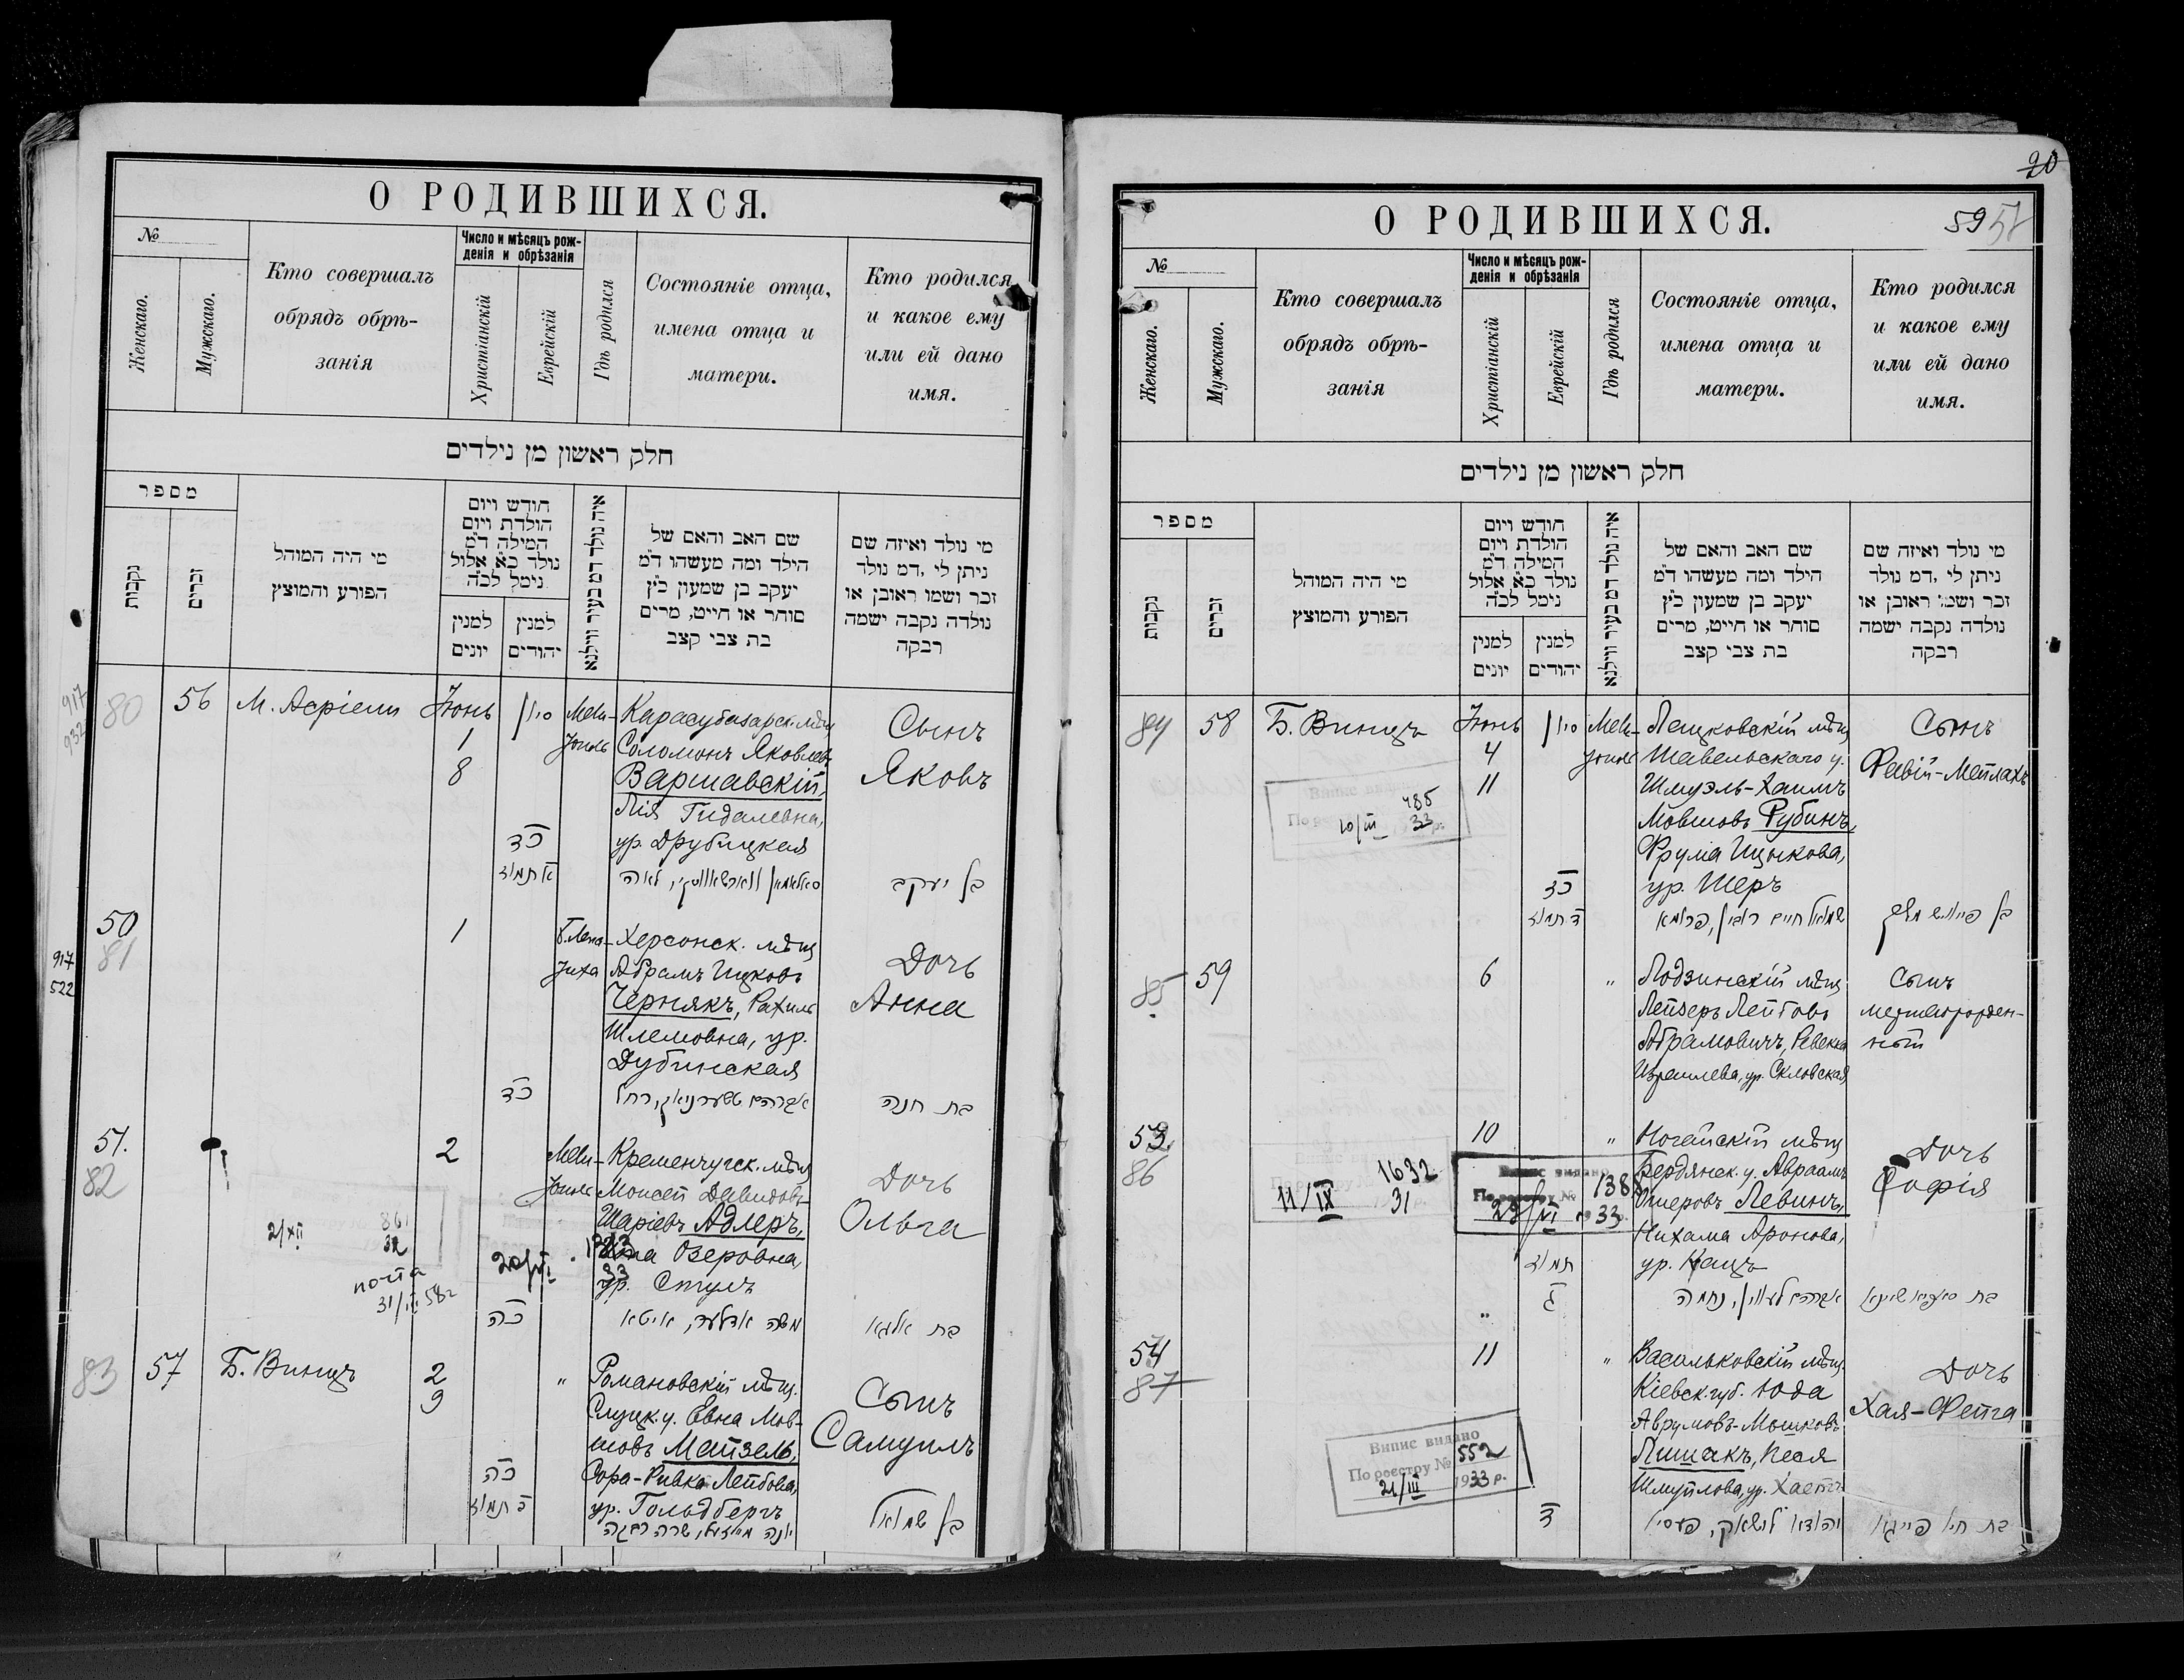 О РОДИВШИХСЯ.
№
Женскаго.
Мужскаго.
Кто совершалъ
обрядъ обрѣ-
занія
Число и мѣсяцъ рож-
денія и обрѣзанія
Христіанскій
Еврейскій
Гдѣ родился
Состояніе отца,
имена отца и
матери.
Кто родился
и какое ему
или ей дано
имя.
חלק ראשון מן נילדים
מספר
נקבות
זכרים
מי היה המוהל
הפורע והמוצץ
חודש ויום
הולדת ויום
המילה ד״מ
נולד כ״א אלול
נימל לכ״ה
למנין
יונים
למנין
יהודים
איה נולד דמ בעיר ווילנא
שם האב והאם של
הילד ומה מעשהו ד״מ
יעקב בן שמעון כ״ץ
סוחר או חייט, מרים
בת צבי קצב
מי נולד ואיזה שם
ניתן לי ,דמ נולד
זכר ושמו ראובן או
נולדה נקבה ישמה
רבקה
917
932
80
56
М. Асріели
Іюнь
1
8
סיון
Мели-
тополь
Карасубазарск. мѣщ
Соломонъ Яковлевъ
Варшавскій,
Лія Гидалевна,
ур. Друбицкая
Сынъ
Яковъ
כד
א תמוז
סאלאמאן ווארשאווסקי, לאה
בן יעקב
50
81
917
522
1
Херсонск. мѣщ
Абрамъ Ицковъ
Чернякъ, Рахиль
Шлемовна, ур.
Дубинская
Дочь
Анна
כד
אברהם טשערניאק, רחל
בת חנה
51.
82
2
Мели-
тополь
Кременчугск. мѣщ
Моисей Давидовъ-
Шаріевъ Адлеръ,
Озеровна,
ур. Стуль
Дочь
Ольга
2/XII
861
32
почта
31/III 582
20/VI
1323
33
כה
משה אדלער, איטא
בת אלגא
83
57
Б. Винцъ
2
9
"
Романовскій мѣщ.
Слуцк. у. Евна Мов-
шовъ Майзель,
Сора-Ривка Лейбова,
ур. Гольдбергъ
Сынъ
Самуилъ
כה
ב תמוז
יונה מאיזעל, שרה רבקה
בן שמואל
О РОДИВШИХСЯ.
20
59 57
№
Женскаго.
Мужскаго.
Кто совершалъ
обрядъ обрѣ-
занія
Число и мѣсяцъ рож-
денія и обрѣзанія
Христіанскій
Еврейскій
Гдѣ родился
Состояніе отца,
имена отца и
матери.
Кто родился
и какое ему
или ей дано
имя.
חלק ראשון מן נילדים
מספר
נקבות
זכרים
מי היה המוהל
הפורע והמוצץ
חודש ויום
הולדת ויום
המילה ד״מ
נולד כ״א אלול
נימל לכ״ה
למנין
יונים
למנין
יהודים
איה נולד דמ בעיר ווילנא
שם האב והאם של
הילד ומה מעשהו ד״מ
יעקב בן שמעון כ״ץ
סוחר או חייט, מרים
בת צבי קצב
מי נולד ואיזה שם
ניתן לי ,דמ נולד
זכר ושמו ראובן או
נולדה נקבה ישמה
רבקה
84
58
Б. Винцъ
Іюнь
4
11
סיון
Мели-
тополь
Лецковскій мѣщ
Шавельскаго у.
Шмуэль-Хаимъ
Мовшовъ Рубинъ,
Фрума Ицыкова,
ур. Шеръ
Сынъ
Фавій-Мейлахъ
Випис видано
485
10/III 33
כד
ד תמוז
שמואל חיים רובין, פרומא
85
59
6
"
Лодзинскій мѣщ
Лейзеръ Лейбовъ
Абрамовичъ, Ревекка
Израилева, ур. Скловская
Сынъ
мертворожден-
ный
53.
86
10
"
Ногайскій мѣщ
Бердянск. у. Авраамъ
Ошеровъ Левинъ,
Нихама Аронова,
ур. Кацъ
Дочь
Софія
1632
11/IX 31
Випис видано
По реєстру № 138
29/VI 1933
תמוז
ג
אברהם לעווין, נחמה
54
87
11
"
Васильковскій мѣщ.
Кіевск. губ. Юда
Аврумовъ-Мошковъ
Лишакъ, Песя
Шмуйлова, ур. Хаетъ
Дочь
Хая-Фейга
Випис видано
По реєстру № 552
21/III 1933 р.
ד
יהודא לישאק, פעסיא
בת חיה פייגא